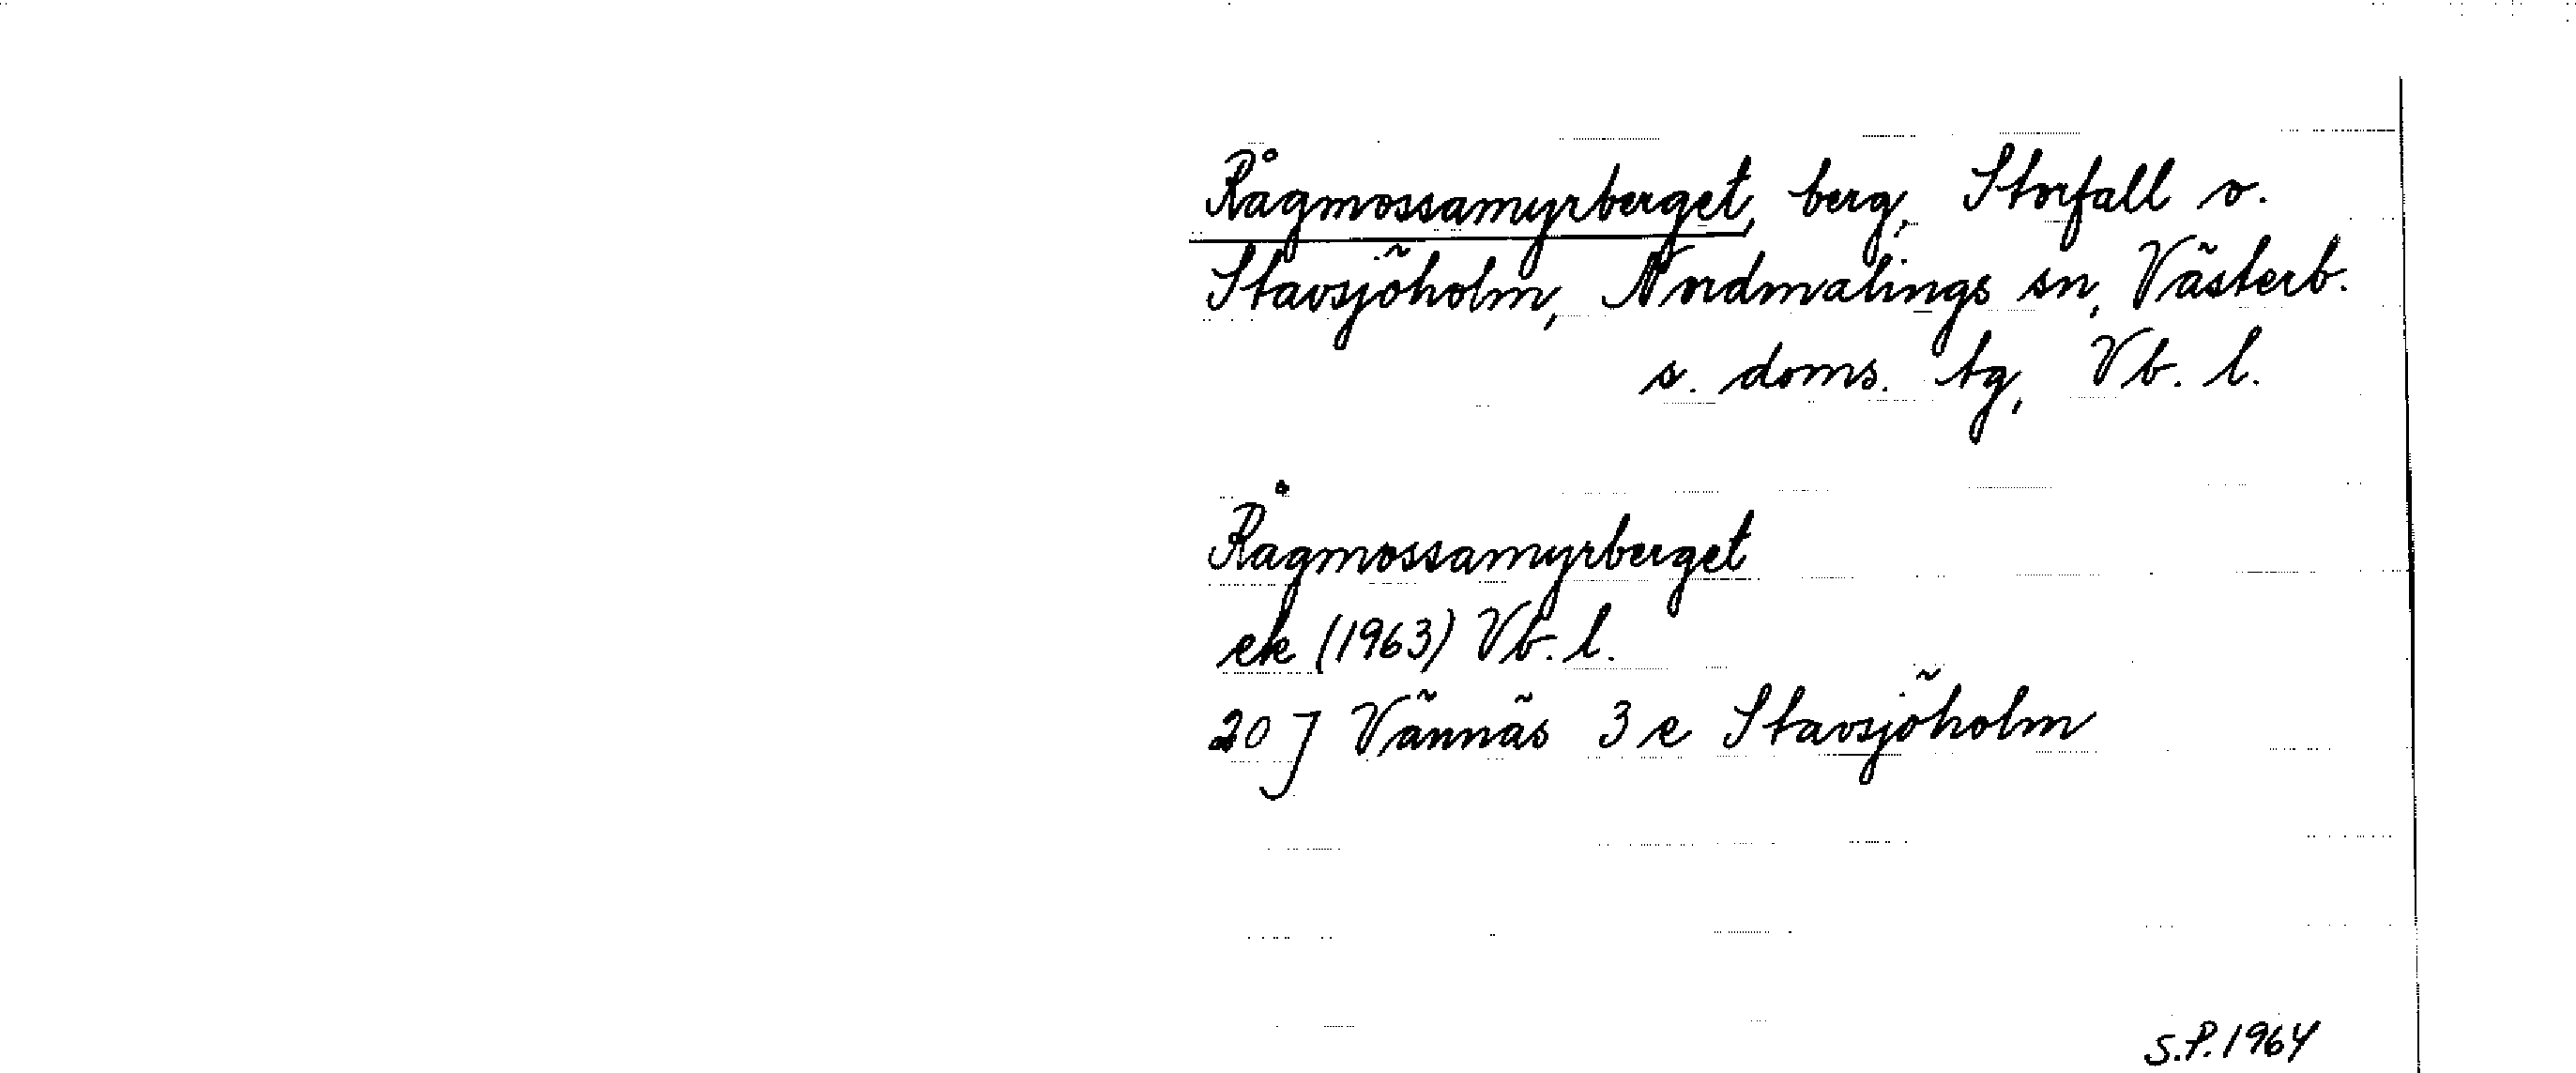 Rågmossamyrberget, berg, Storfall o.
Stavsjöholm, Nordmalings sn, Västerb.
s. doms. tg, Vb. l.
Rågmossamyrberget
ek (1963) Vb. l.
20 J Vännäs 3 e Stavsjöholm
S.P. 1964